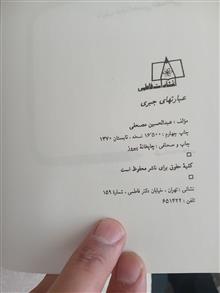 انتشارات فاطمی
عبارتهای جبری
مؤلف : عبدالحسین مصحفی
چاپ چهارم ، ۱۶۵۰۰ نسخه ، تابستان ۱۳۷۰
چاپ و صحافی : چاپخانهٔ پیروز
کلیهٔ حقوق برای ناشر محفوظ است
نشانی : تهران ، خیابان دکتر فاطمی ، شمارهٔ ۱۵۹
تلفن : ۶۵۱۴۲۲